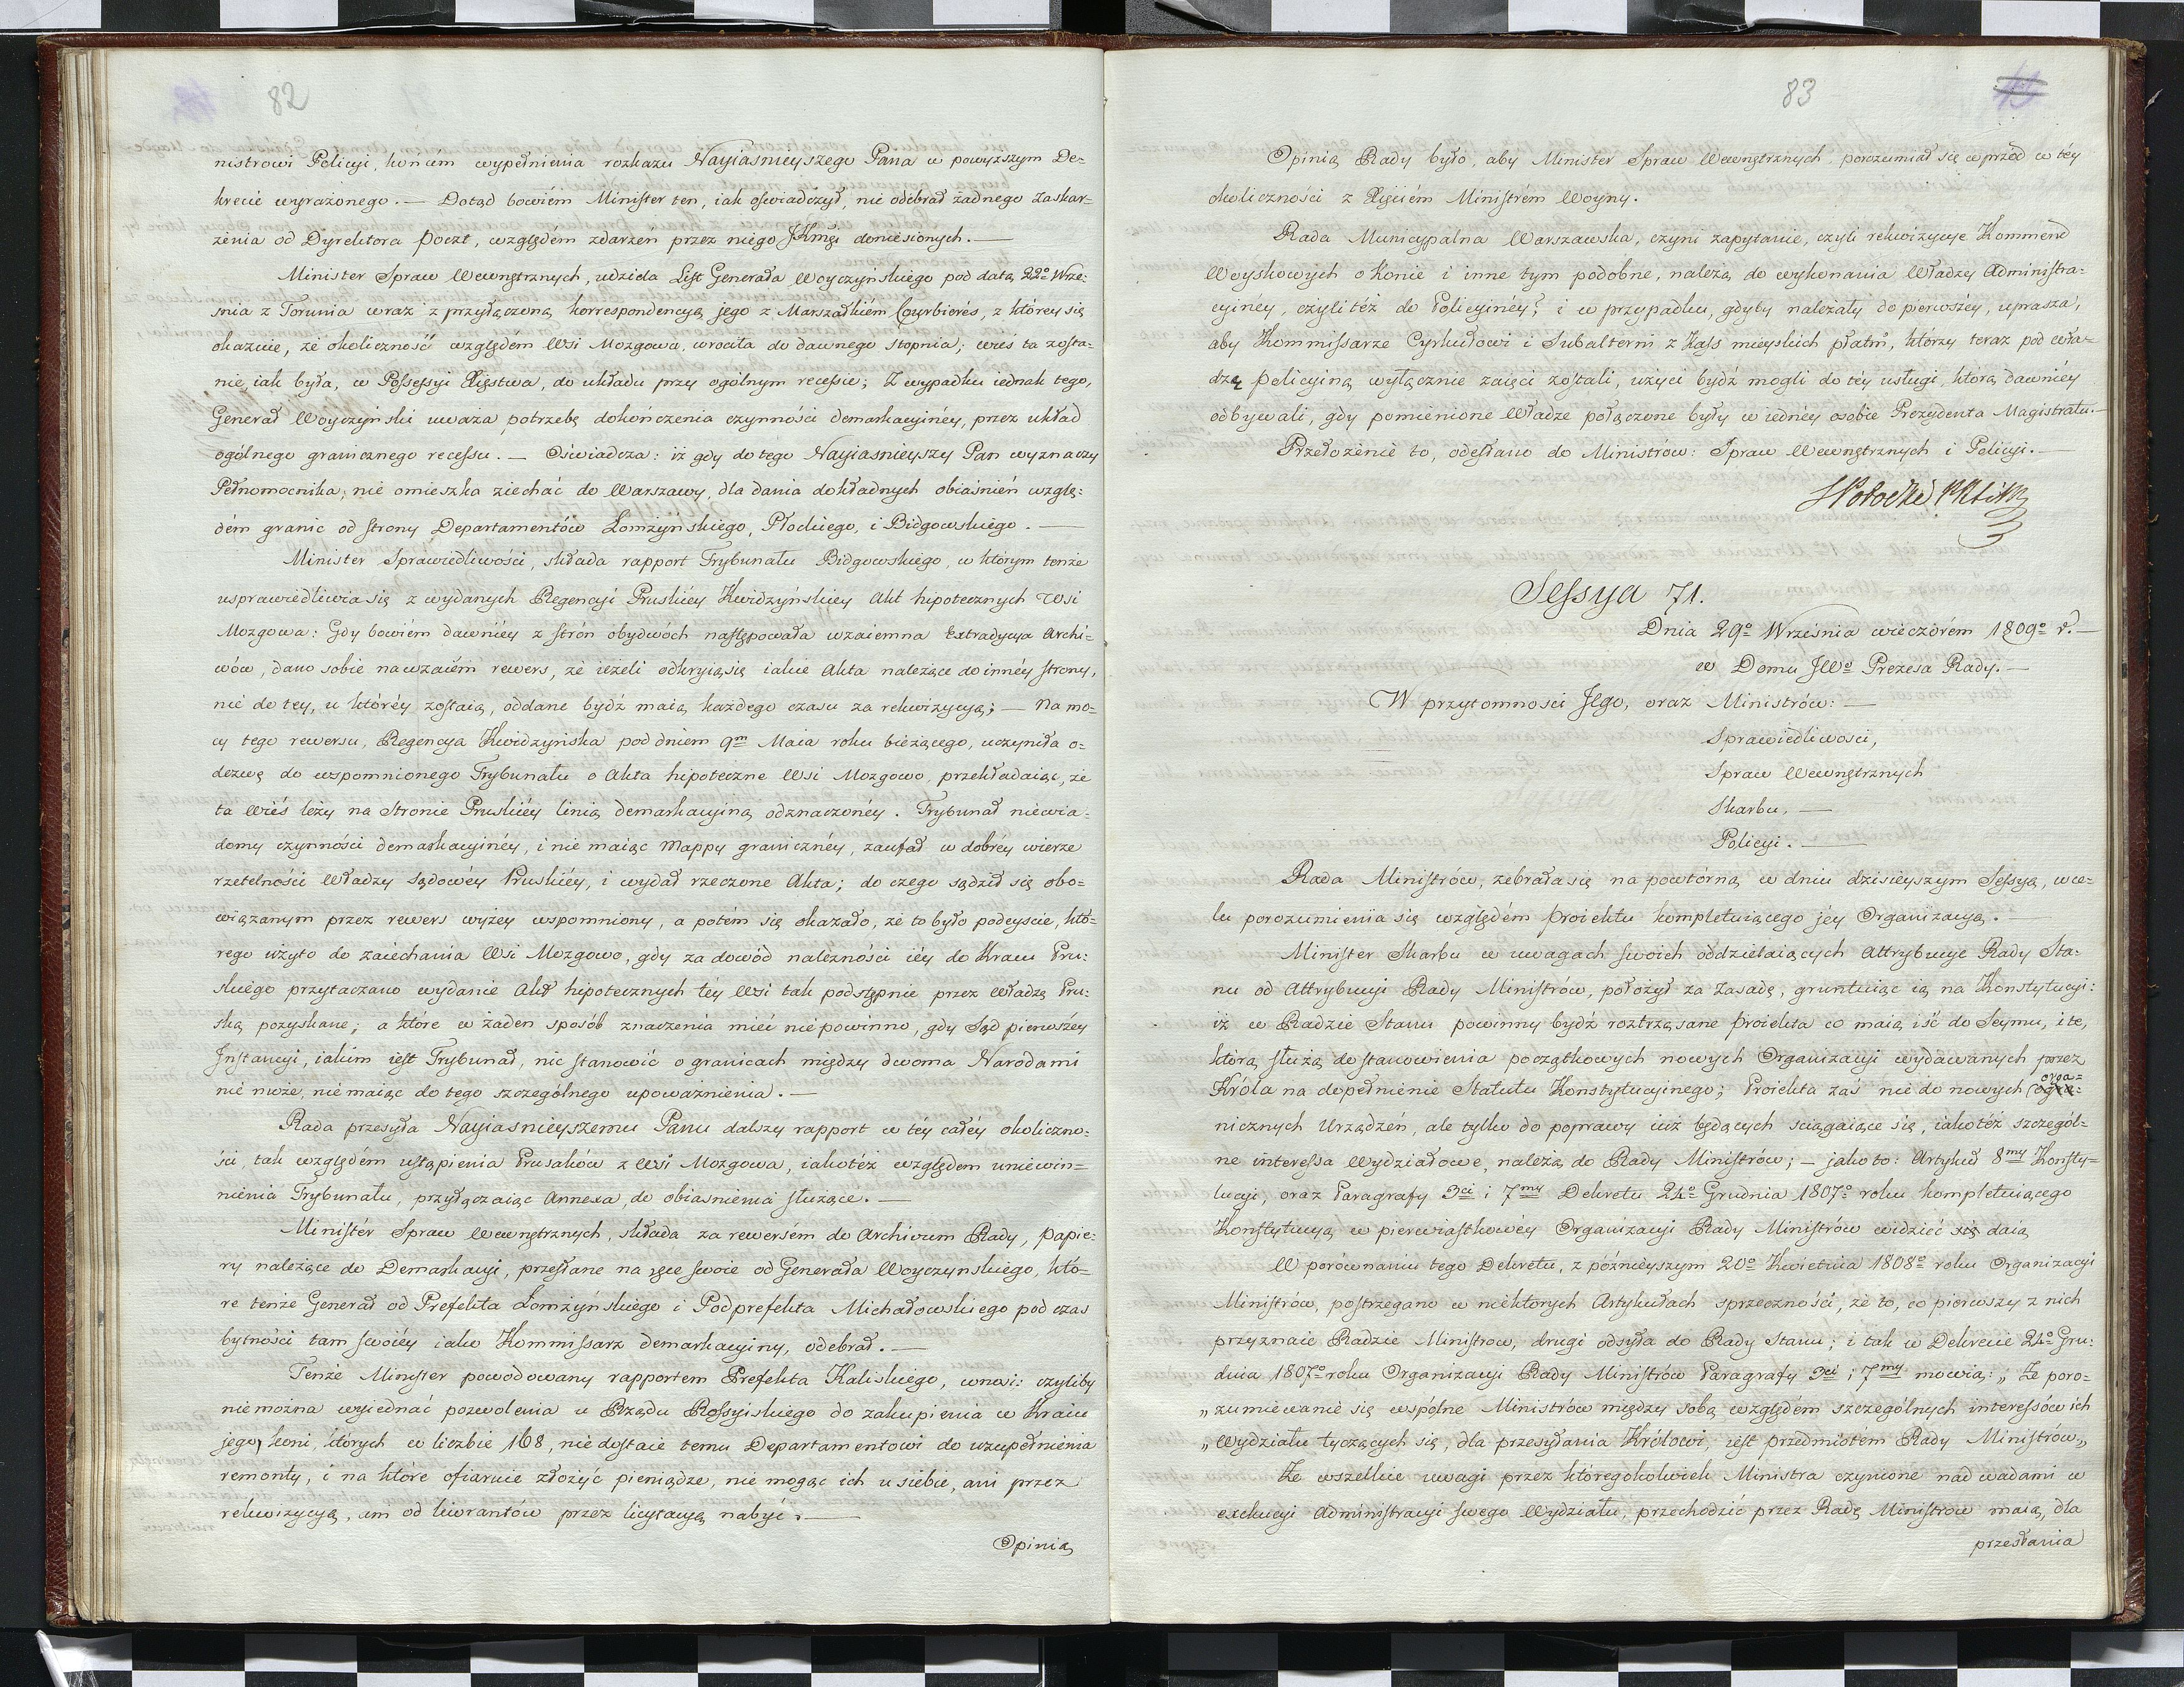 82
nistrowi Policyi, końcém wypełnienia rozkazu Nayiasnieyszego Pana w powyzszym De=
krecie wyrażonego. — Dotąd bowiém Minister ten, iak oświadczył, nie odébrał żadnego Zaskar=
żenia od Dyrektora Poczt, względém zdarzeń przez niego JKmći doniesionych. —
Minister Spraw Wewnętrznych, udziela List Generała Woyczyńskiego pod datą 22º Wrze=
śnia z Torunia wraz z przyłączoną korrespondencyą jego z Marszałkiém Courbierés, z którey się
okazuie, że okoliczność względém Wsi Mozgowa, wrociła do dawnego stopnia; wieś ta zosta=
nie, iak była, w Possessyi Xięstwa, do układu przy ogólnym recessie; Z wypadku iednak tego,
Generał Woyczyński uważa potrzebę dokończenia czynności demarkacyinéy, przez układ
ogólnego granicznego recessu. — Oświadcza: iż gdy do tego Nayiasnieyszy Pan wyznaczy
Pełnomocnika, nie omieszka ziechać do Warszawy, dla dania dokładnych obiaśnień wzglę=
dém granic od strony Departamentów Łomżyńskiego, Płockiego, i Bidgowskiego. —
Minister Sprawiedliwości, składa rapport Trybunału Bidgowskiego, w którym tenże
usprawiedliwia się z wydanych Regencyi Pruskiéy Kwidzyńskiey Akt hipotecznych Wsi
Mozgowa: Gdy bowiém dawniéy z strón obydwóch następowała wzaiemna Extradycya Archi=
wów, dano sobie nawzaiém rewers, że ieżeli odkryią się iakie Akta należące do innéy strony,
nie do tey, u któréy zostaią, oddane bydź maią każdego czasu za rekwizycyą; — Na mo=
cy tego rewersu, Regencya Kwidzyńska pod dniem 9m Maia roku bieżącego, uczyniła o=
dezwę do wspomnionego Trybunału o Akta hipoteczne Wsi Mozgowo, przekładaiąc, że
ta Wieś leży na Stronie Pruskiéy linią demarkacyiną odznaczonéy. Trybunał niewia=
domy czynności demarkacyinéy, i nie maiąc Mappy graniczнéy, zaufał w dobréy wierze
rzetelności Władzy sądowéy Pruskiéy, i wydał rzeczone Akta; do czego sądził się obo=
wiązanym przez rewers wyżey wspomniony, a potém się okazało, że to było podeyscie, któ=
rego użyto do zaiéchania Wsi Mozgowo, gdy za dowód należności iéy do Kraiu Pru=
skiego przytaczano wydanie Akt hipotecznych téy Wsi tak podstępnie przez Władzę Pru=
ską pozyskane; a które w żaden sposób znaczenia mieć nie powinno, gdy Sąd pierwszéy
Instancyi, iakim iest Trybunał, nic stanowić o granicach między dwoma Narodami
nie może, nie maiąc do tego szczególnego upoważnienia. —
Rada przesyła Nayiasnieyszemu Panu dalszy rapport w téy całéy okoliczno=
ści, tak względém ustąpienia Prusaków z Wsi Mozgowa, iakotéż względem uniewin=
nienia Trybunału, przyłączaiąc Annexa, do obiasnienia służące. —
Ministér Spraw Wewnętrznych, składa za rewersém do Archivum Rady, papie=
ry należące do Demarkacyi, przesłane na ręce swoie od Generała Woyczyńskiego, któ=
re tenże Generał od Prefekta Łomżyńskiego i Podprefekta Michałowskiego pod czas
bytności tam swoiéy iako Kommissarz demarkacyiny, odebrał. —
Tenże Minister powodowany rapportem Prefekta Kaliskiego, wnosi: czyliby
nie można wyiednać pozwolenia u Rządu Rossyiskiego do zakupienia w Kraiu
jego, koni, których w liczbie 168, nie dostaie temu Departamentowi do uzupełnienia
remonty, i na które ofiaruie złożyć pieniądze, nie mogąc ich u siebie, ani przez
rekwizycyą, ani od liwrantów przez licytacyą nabyć. —
Opinią
83
Opinią Rady było, aby Minister Spraw Wewnętrznych, porozumiał się wprzód w téy
okoliczności z Xięciém Ministrém Woyny.
Rada Municypalna Warszawska, czyni zapytanie, czyli rekwizycye Kommend
Woyskowych o konie i inne tym podobne, należą do wykonania Władzy Administra=
cyiney, czyli téż do Policyinéy? i w przypadku, gdyby należały do pierwszéy, uprasza,
aby Kommissarze Cyrkułowi i Subalterni z Kass mieyskich płatni, którzy teraz pod wła=
dzę policyiną wyłącznie zaięci zostali, użyci bydź mogli do téy usługi, którą dawniéy
odbywali, gdy pomienione Władze połączone były w iednéy osobie Prezydenta Magistratu. —
Przełożenie to, odesłano do Ministrów: Spraw Wewnętrznych i Policyi. —
SPotocki
Sessya 71.
Dnia 29º Września wieczórem 1809º r. —
w Domu JWº Prezesa Rady. —
W przytomności Jego, oraz Ministrów: —
Sprawiedliwości,
Spraw Wewnętrznych
Skarbu, —
Policyi. —
Rada Ministrów, zebrała się na powtórną w dniu dzisieyszym Sessyą, w ce=
lu porozumienia się względém Proiektu kompletuiącego jéy Organizacyą. —
Minister Skarbu w uwagach swoich oddzielaiących Attrybucye Rady Sta=
nu od Attrybucyi Rady Ministrów, położył za Zasadę, gruntuiąc ią na Konstytucyi:
iż w Radzie Stanu powinny bydź roztrząsane Proiekta co maią iść do Seymu, i te,
które służą do stanowienia początkowych nowych Organizacyi wydawanych przez
Króla na dopełnienie Statutu Konstytucyinego; Proiekta zaś nie do nowych orga=
nicznych Urządzeń, ale tylko do poprawy iuż będących sciągaiące się, iakotéż szczegól=
ne interessa Wydziałowe, należą do Rady Ministrów; — jako to: Artykuł 8my Konsty=
tucyi, oraz Paragrafy 3ci i 7my Dekretu 24º Grudnia 1807º roku kompletuiącego
Konstytucyą w pierwiastkowéy Organizacyi Rady Ministrów widzieć się daią
W porównaniu tego Dekretu, z późnieyszym 20º Kwietnia 1808º roku Organizacyi
Ministrów, postrzegano w niektorych Artykułach sprzeczności, że to, co pierwszy z nich
przyznaie Radzie Ministrów, drugi odsyła do Rady Stanu; i tak w Dekrecie 24º Gru=
dnia 1807º roku Organizacyi Rady Ministrów Paragrafy 3ci i 7my mowią: „Że poro=
„zumiewanie się wspólne Ministrów między sobą względém szczególnych interessów ich
„Wydziału tyczących się, dla przesyłania Królowi, iest przedmiotém Rady Ministrów„
Że wszelkie uwagi przez któregokolwiek Ministra czynione nad wadami w
exekucyi Administracyi swego Wydziału, przechodzić przez Radę Ministrów maią, dla
przesłania